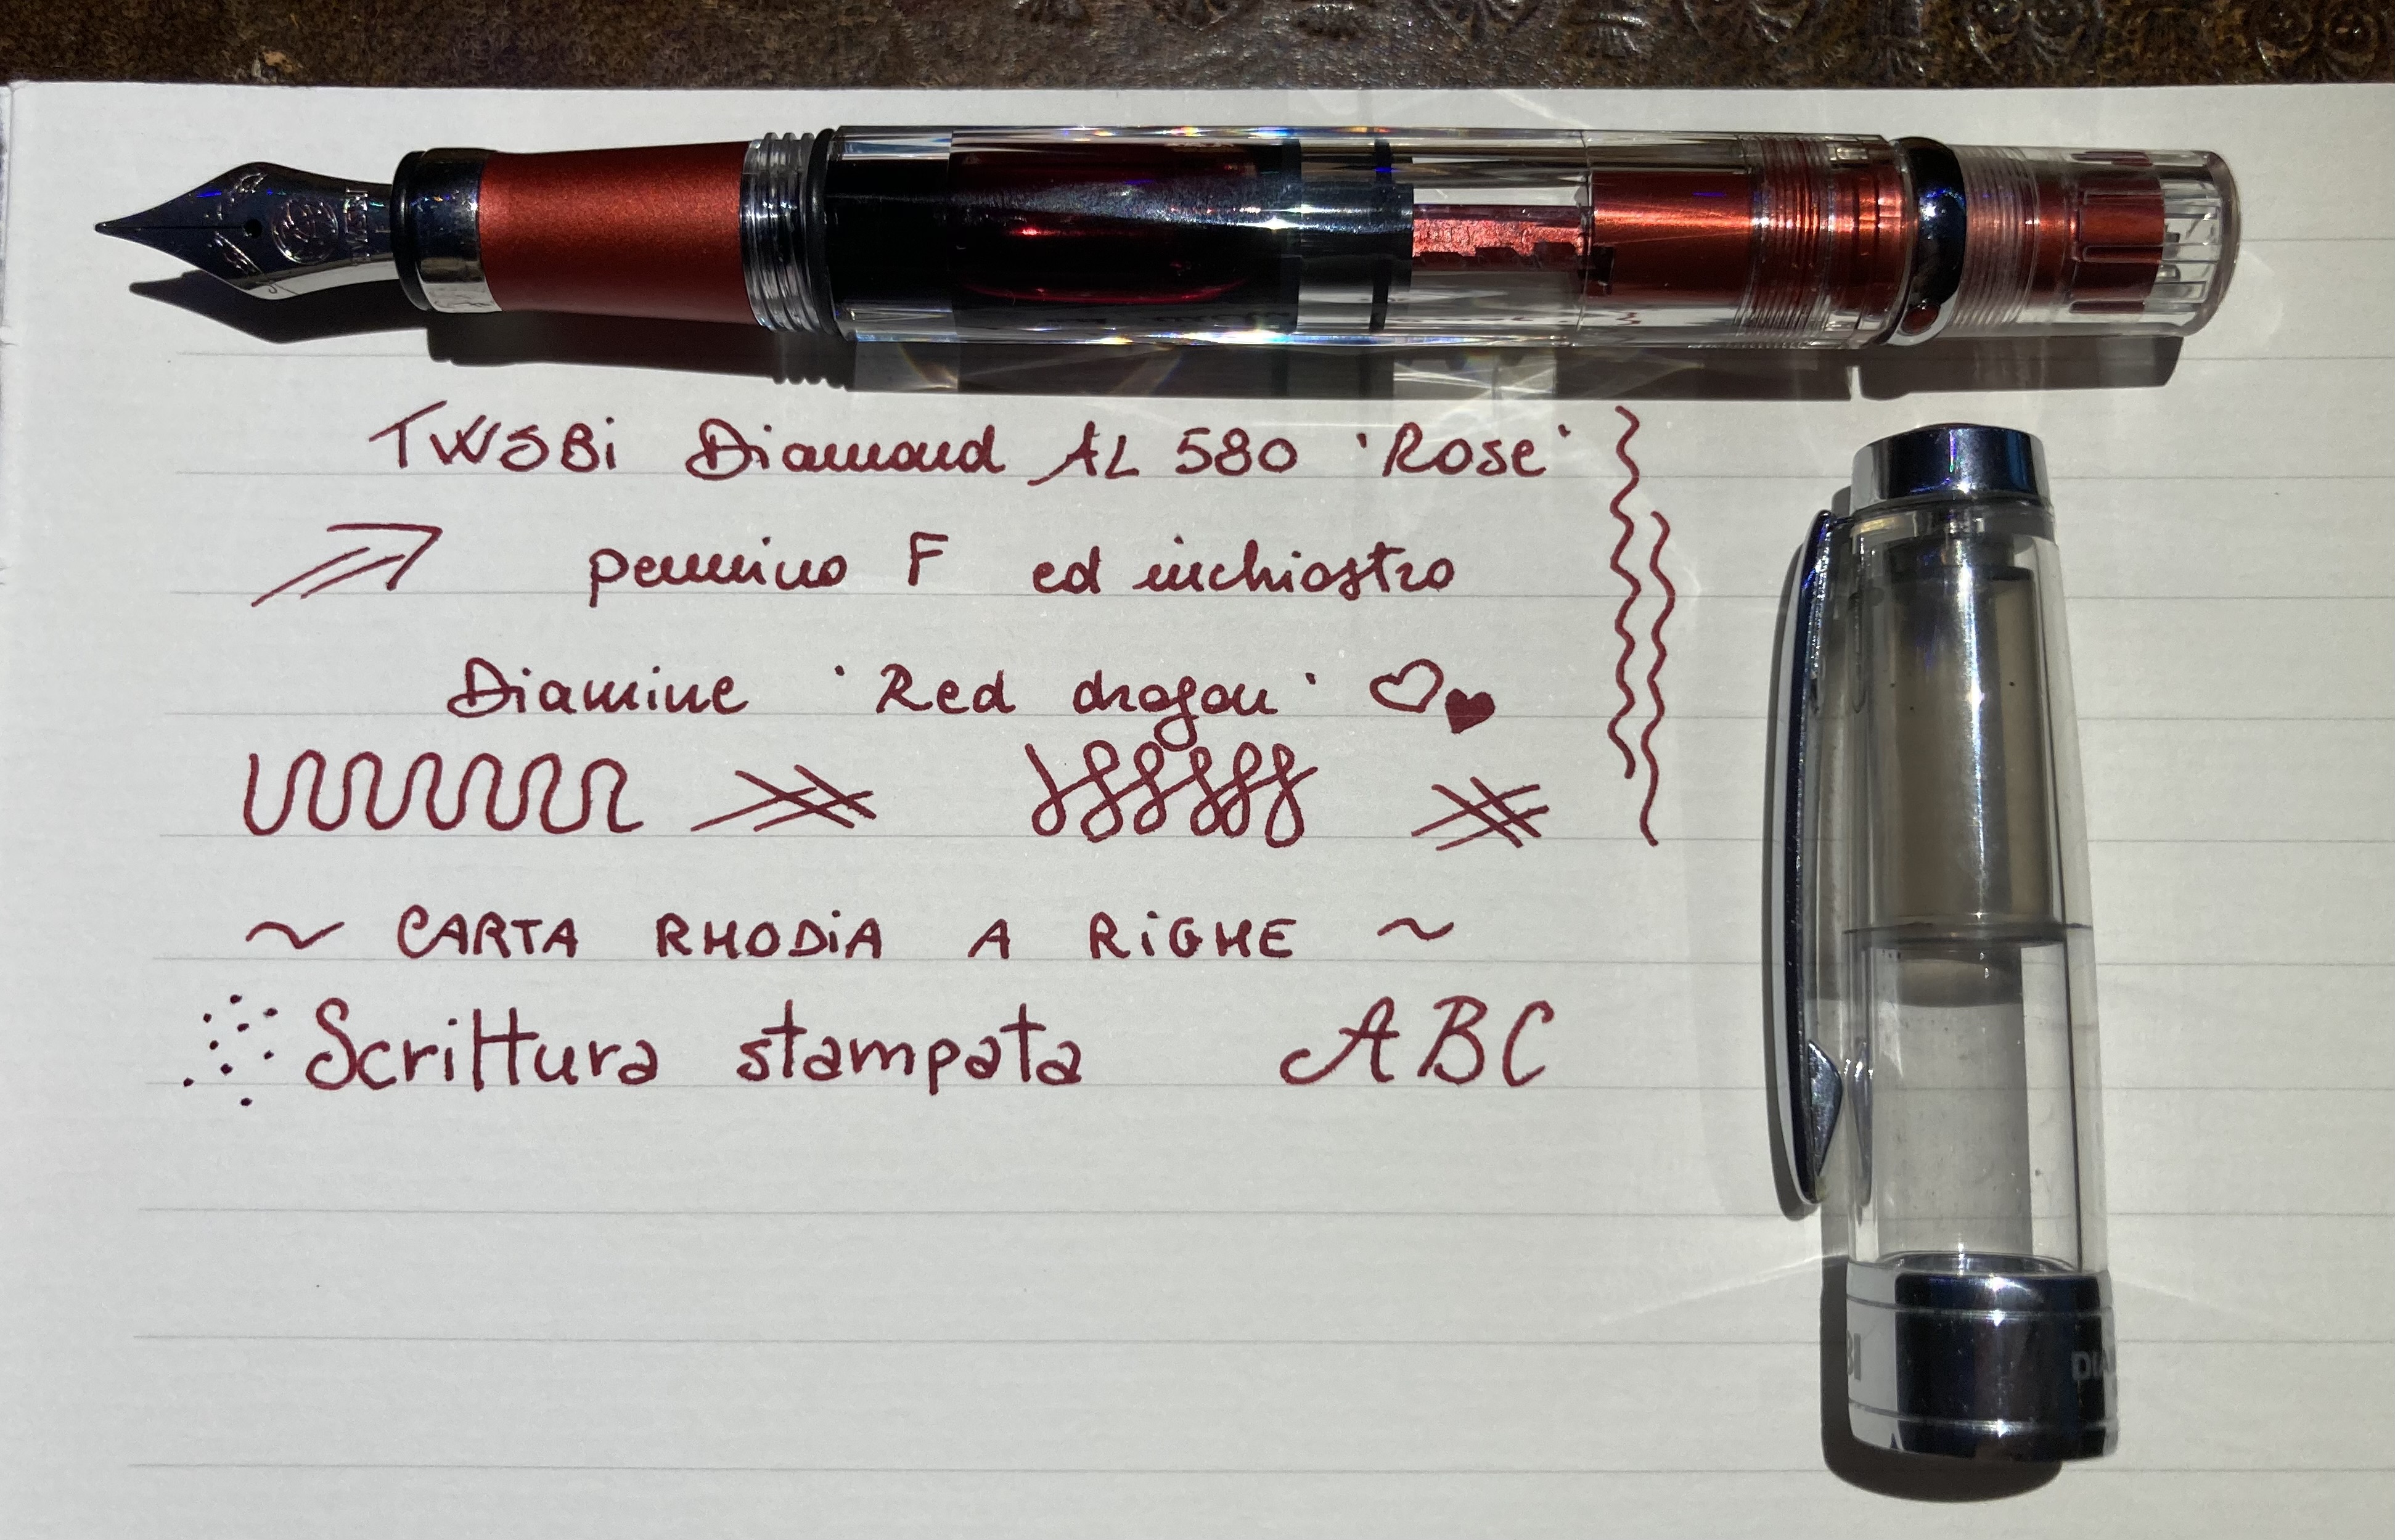 TWSBi Diamond AL 580 'Rose'
pennino F ed inchiostro
Diamine 'Red dragon'
~ CARTA RHODiA A RiGHE ~
Scrittura stampata ABC